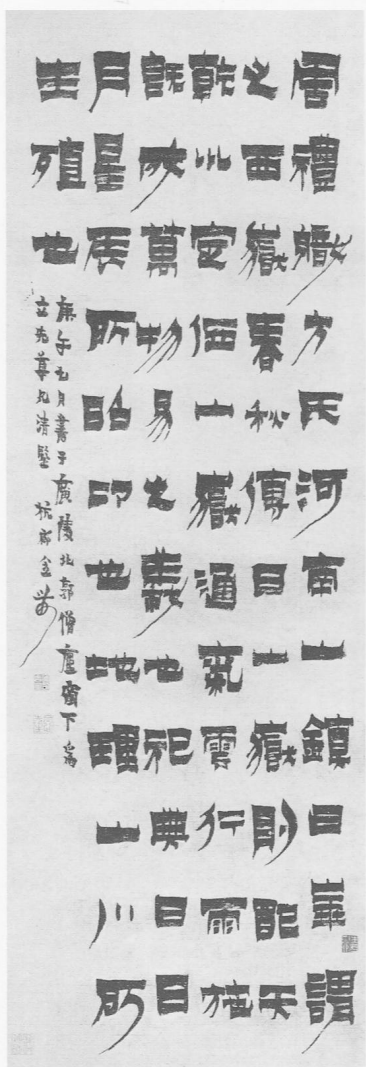 周禮職方氏河南山鎮曰華謂
之西嶽春秋傳曰山嶽則配天
乾巛定位山嶽通氣雲行雨施
既成萬物易之義也祀典曰日
月星辰所昭卬也地理山川所
生殖也
庚午月書于廣陵北郭僧廬齋下為
尊兄清鑒 杭郡金農